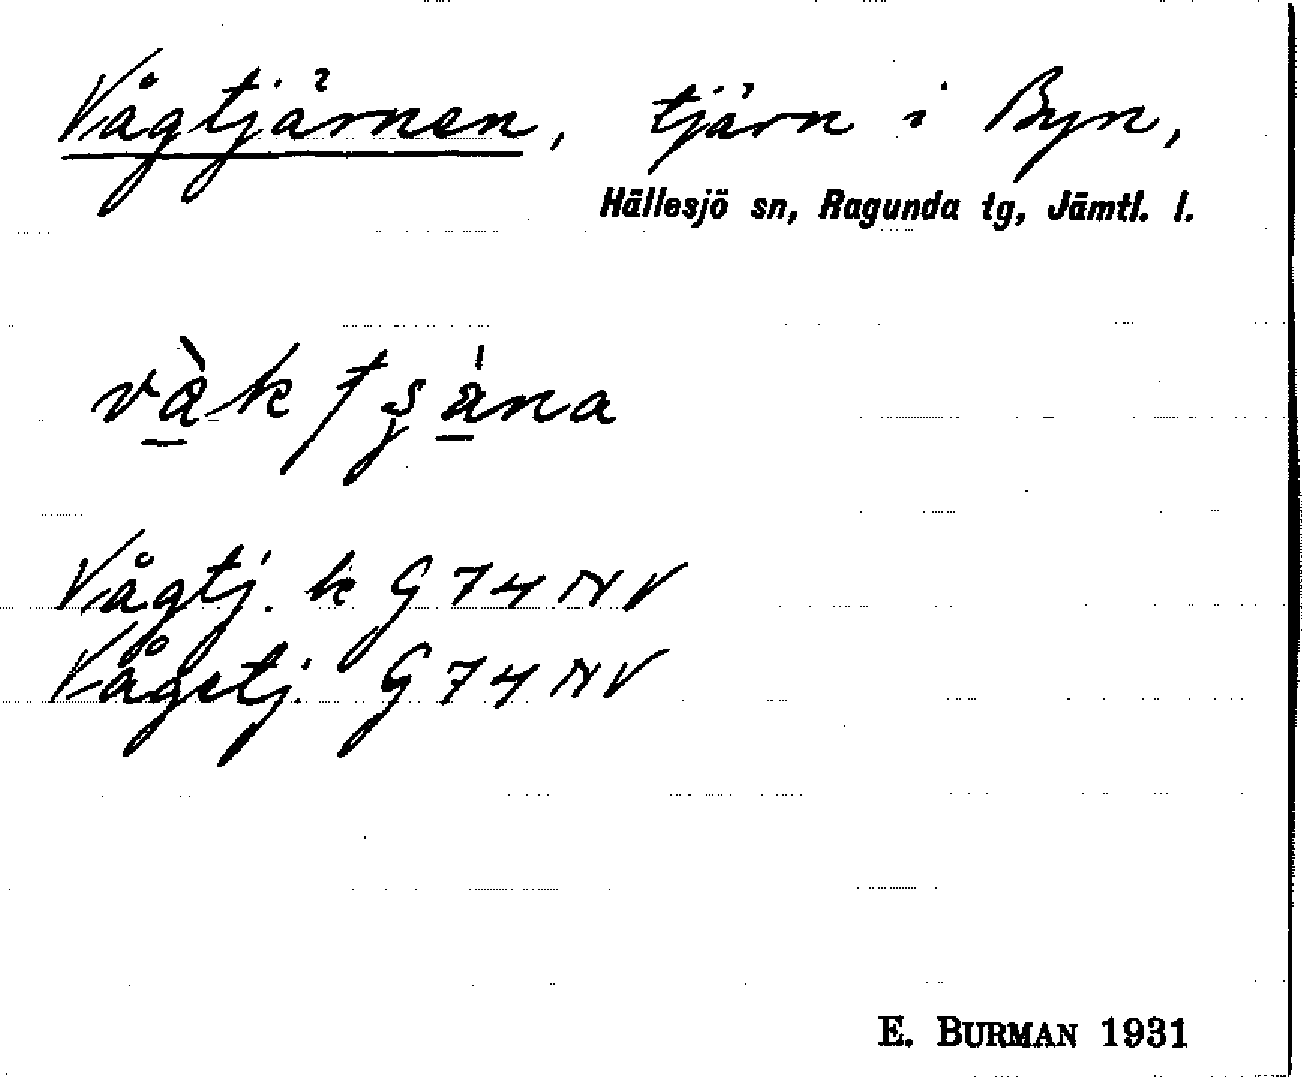 Vågtjärnen, tjärn i Byn,
Hällesjö sn, Ragunda tg, Jämtl. l.
Vågtj. k G 74 NV
Vågstj. G 74 NV
E. BURMAN 1931